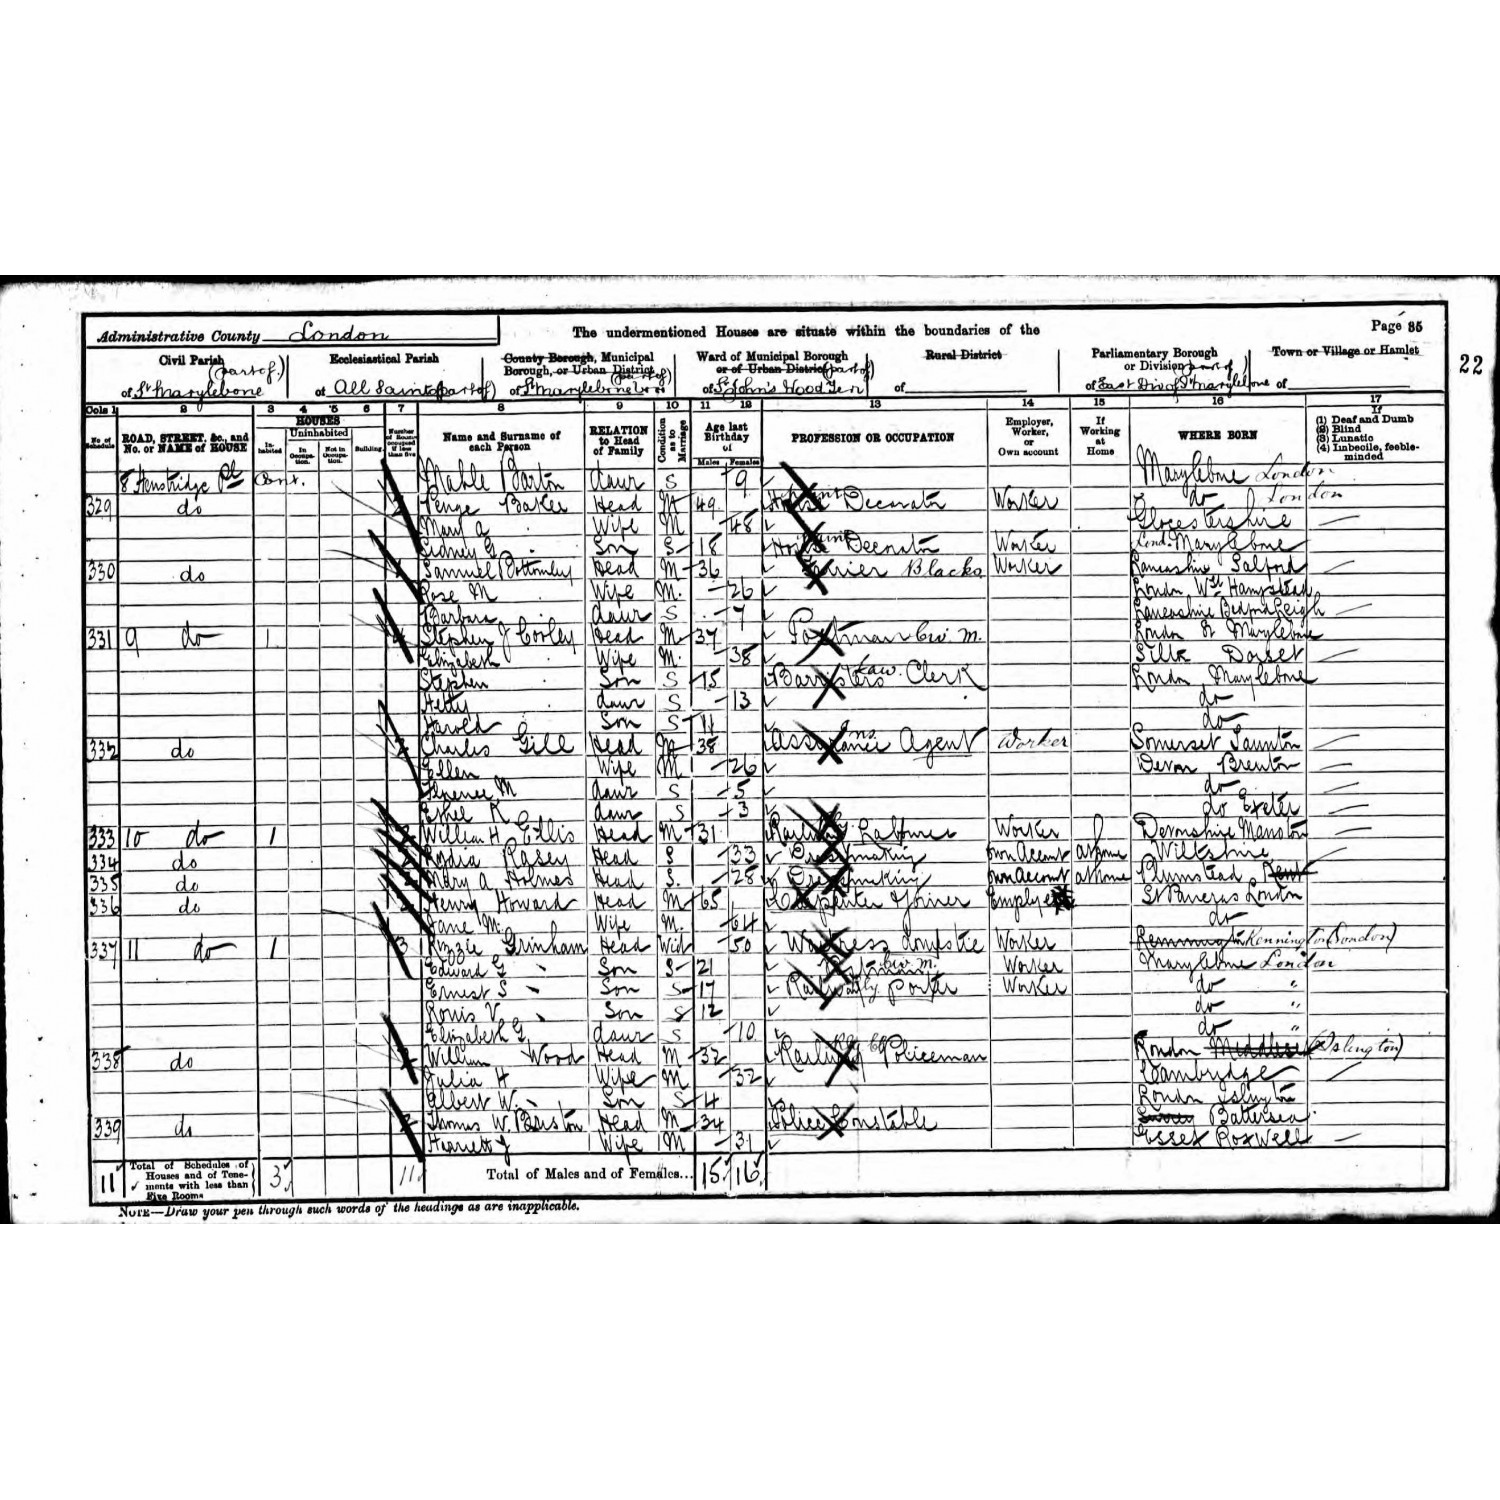 Administrative County London
The undermentioned Houses are situate within the boundaries of the
Page 35
22
Civil Parish (part of)
of St Marylebone
Ecclesiastical Parish
of All Saints (part of)
County Borough, Municipal Borough, or Urban District (part of)
of St Marylebone
Ward of Municipal Borough or of Urban District (part of)
of St John's Wood Ter
Rural District
of
Parliamentary Borough or Division part of
of East Div of St Marylebone
Town or Village or Hamlet
of
Cols 1 2 3 4 5 6 7 8 9 10 11 12 13 14 15 16 17
No. of Schedule
ROAD, STREET, &c., and No. or NAME of HOUSE
HOUSES
Inhabited
Uninhabited
In Occupation.
Not in Occupation.
Building.
Number of Rooms occupied if less than five
Name and Surname of each Person
RELATION to Head of Family
Condition as to Marriage
Age last Birthday of
Males Females
PROFESSION OR OCCUPATION
Employer, Worker, or Own account
If Working at Home
WHERE BORN
If
(1) Deaf and Dumb
(2) Blind
(3) Lunatic
(4) Imbecile, feeble-minded
8 Henstridge Pl Cont. Mable Barton daur S 9 Marylebone London
329 do Baker Head M 49 House Decorator Worker do London
Mary A Wife M 48 Glocestershire
Sidney G Son S 18 House Decorator Worker Lond. Marylebone
330 do Samuel Bottomley Head M 36 Blacks Worker Lancashire Salford
Rose M Wife M. 26 London Wst Hampstead
Barbara daur S 7 Lancashire Bedford Leigh
331 9 do 1 4 Stephen J Corley Head M 37 Postman Civ. M. London St Marylebone
Elizabeth Wife M. 38 Dorset
Stephen Son S 15 Barristers Law. Clerk London Marylebone
Hetty daur S 13 do
Harold Son S 11 do
332 do Charles Gill Head M 38 Assurance Ins. Agent Worker Somerset Taunton
Ellen Wife M 26 Devon Brenton
Florence M daur S 5 do
Ethel K daur S 3 do Exeter
333 10 do 1 William H Ellis Head M 31 Railway Labourer Worker Devonshire Manston
334 do Rasey Head S 33 Dressmaking own Account at home Wiltshire
335 do Mary A Holmes Head S. 28 Dressmaking own Account at home Plumstead Kent
336 do Henry Howard Head M 65 Carpenter Joiner Employer St Pancras London
Jane M. Wife M. 64 do
337 11 do 1 3 Lizzie Grinham Head Wid 50 Waitress domestic Worker Kennington (London)
Edward G Son S 21 Postman Civ. M. Worker Marylebone London
Ernest S Son S 17 Railway porter Worker do "
Louis V Son S 12 do "
Elizabeth G daur S 10 do "
338 do William Wood Head M 32 Railway Policeman London Middlesex (Islington)
Julia H Wife M 32 Cambridge
Albert W. Son S 4 London Islington
339 do Thomas W. Head M 34 Police Constable Battersea
Harriett J Wife M 31 Essex Roxwell
11 Total of Schedules of Houses and of Tenements with less than Five Rooms 3 11 Total of Males and of Females... 15 16
NOTE—Draw your pen through such words of the headings as are inapplicable.